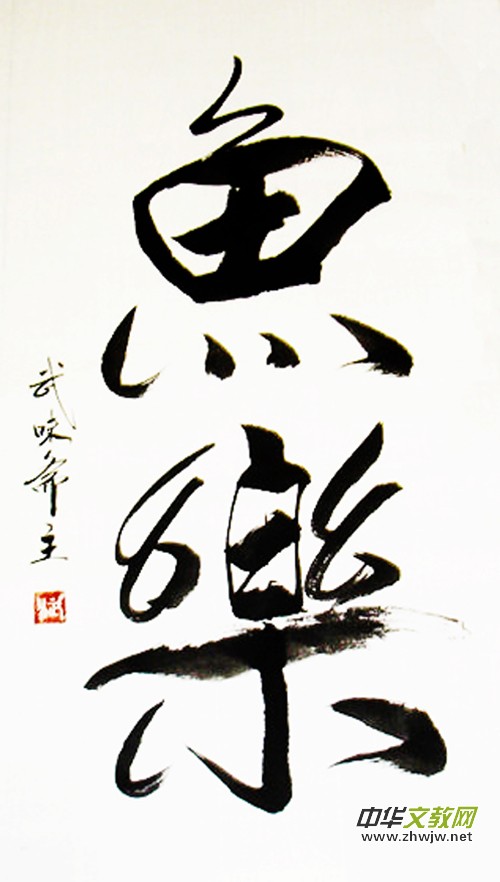 魚樂
武味斋主
中华文教网
www.zhwjw.net